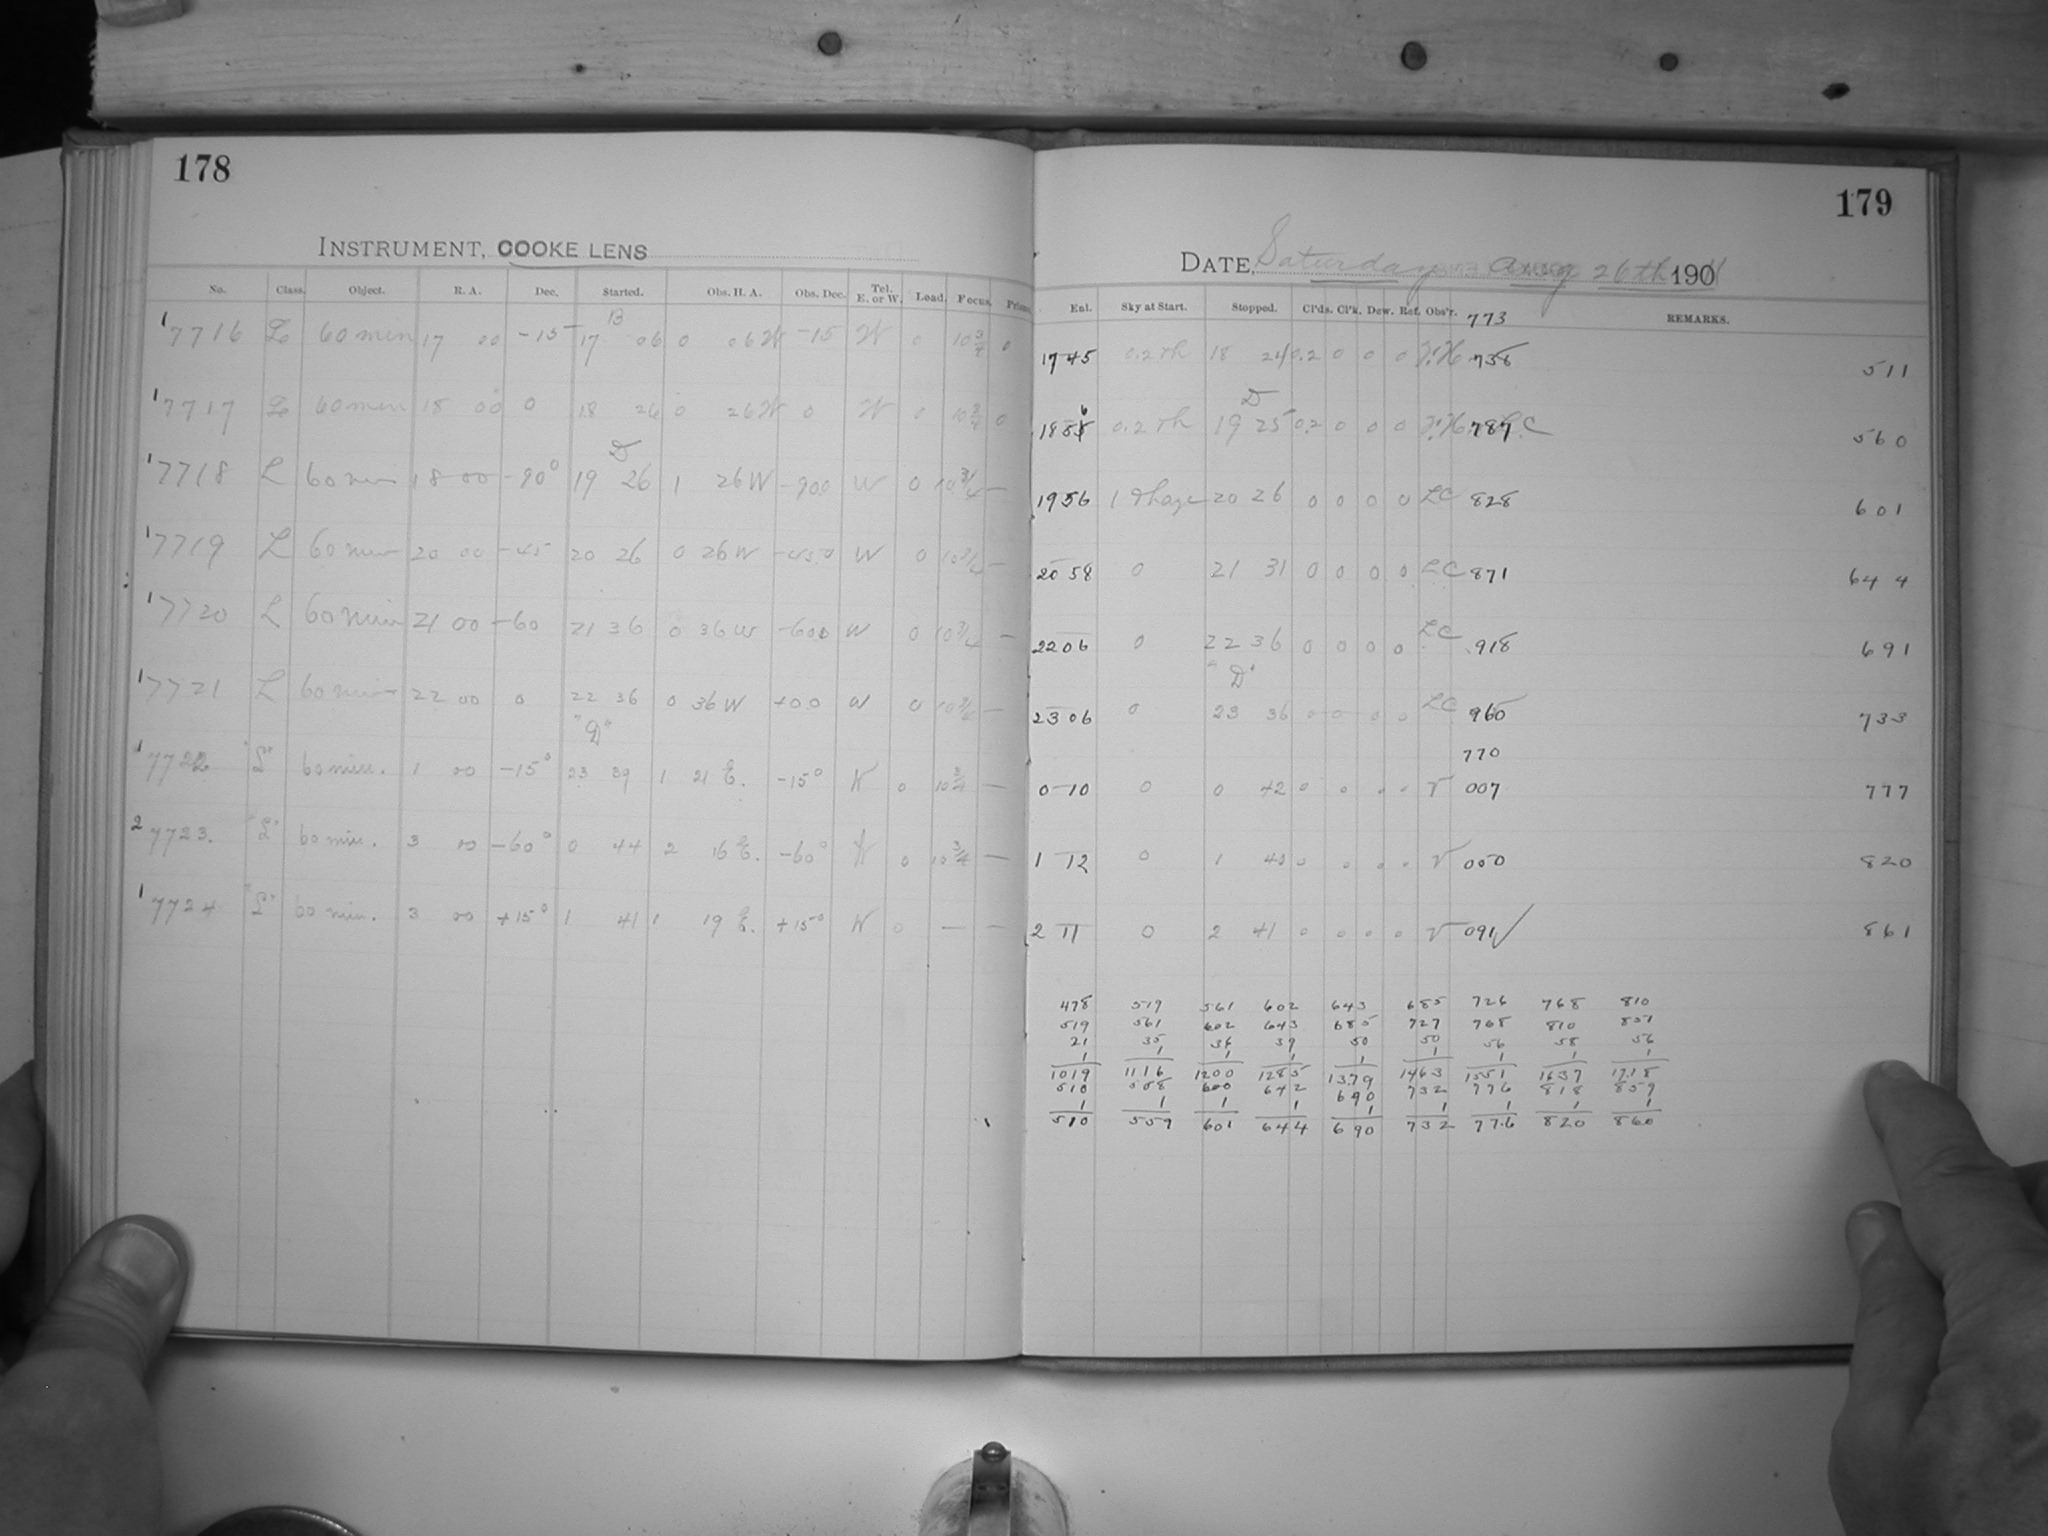 178
INSTRUMENT, COOKE LENS
No. Class. Object. R. A. Dec. Started. Obs. H. A. Obs. Dec. Tel. E. or W. Load. Focus.
B
1 7716 L 60 min 17 00 -15 17 06 0 06 W -15 W 0 10 3/4 0
1 7717 L 60 min 18 00 0 18 26 0 26 W 0 W 0 10 3/4 0
D
1 7718 L 60 min 18 00 -90° 19 26 1 26 W -900 W 0 10 3/4 —
1 7719 L 60 min 20 00 -45 20 26 0 26 W -450 W 0 10 3/4 —
1 7720 L 60 min 21 00 -60 21 36 0 36 W -600 W 0 10 3/4 —
1 7721 L 60 min 22 00 0 22 36 0 36 W +00 W 0 10 3/4 —
"D"
1 7722 "L" 60 min. 1 00 -15° 23 39 1 21 E. -15° W 0 10 3/4 —
2 7723. "L" 60 min. 3 00 -60° 0 44 2 16 E. -60° W 0 10 3/4 —
1 7724 "L" 60 min. 3 00 +15° 1 41 1 19 E. +15° W 0 — —
179
DATE, Saturday Aug 26th 190
Ent. Sky at Start. Stopped. Cl'ds. Cl'k. Dew. Ref. Obs'r. 773 REMARKS.
17 45 0.2 18 0.2 0 0 0 736 511
D
0.2 19 25 0.2 0 0 0 787 560
19 56 1 20 26 0 0 0 0 LC 828 601
20 58 0 21 31 0 0 0 0 LC 871 644
22 06 0 22 36 0 0 0 0 LC 918 691
"D"
23 06 0 23 36 0 0 0 0 LC 960 733
770
0 10 0 0 42 0 0 0 0 V 007 777
1 12 0 1 0 0 0 0 V 050 820
2 11 0 2 41 0 0 0 0 V 091 861
478 519 561 602 643 685 726 768 810
519 561 602 643 685 727 768 810 851
21 35 36 39 50 50 56 58 56
1 1 1 1 1 1 1 1 1
1019 1116 1200 1285 1379 1463 1551 1637 1718
510 558 600 642 690 732 776 818 859
1 1 1 1 1 1 1 1 1
510 559 601 644 690 732 776 820 860